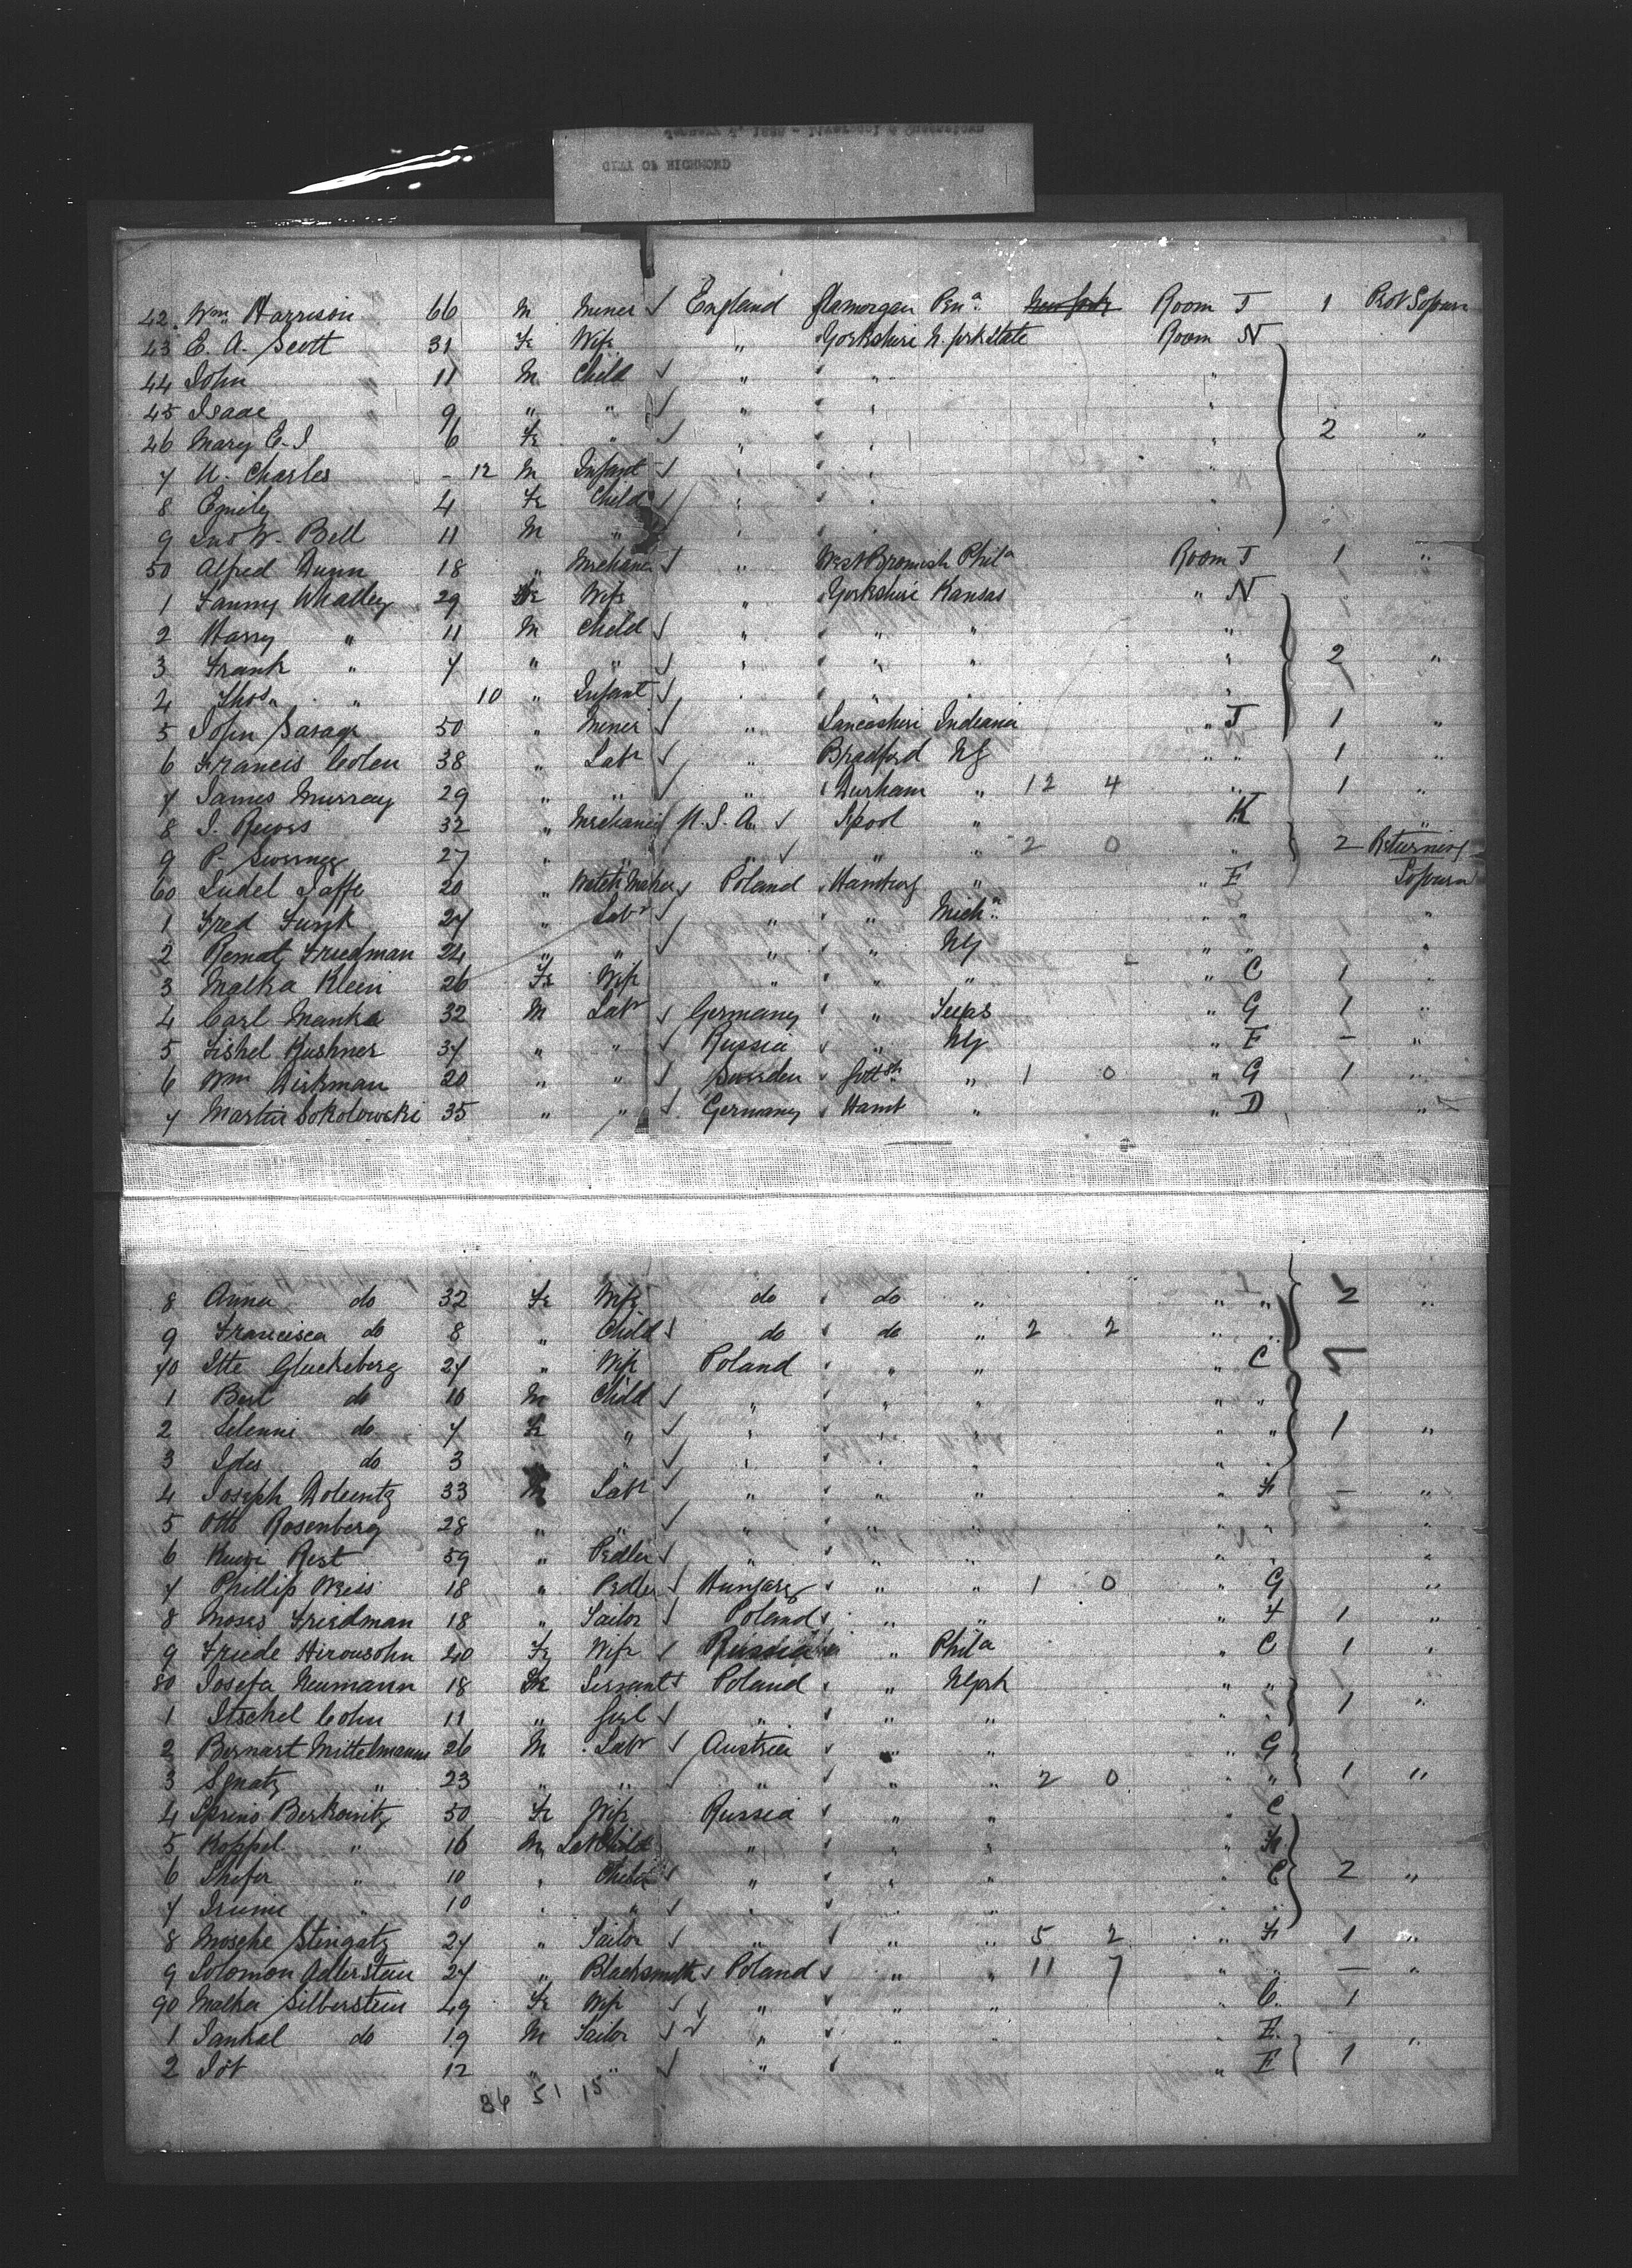 CITY OF RICHMOND
42. Wm Harrison 66 M Miner England Glamorgan Pena New York Room J 1 Prot Sojourn
43 E. A. Scott 31 Fe Wife " Yorkshire N. York State Room N
44 John " 11 M Child " " "
45 Isaac " 9 " " " " "
46 Mary E. J. " 6 Fe " " " " 2 "
7 U. Charles - 12 M Infant " " "
8 Emily 4 Fe Child " " "
9 Jno W. Bell 11 M " " "
50 Alfred Dunn 18 " Mechanic " West Bromich Phila Room J 1 "
1 Fanny Whatley 29 Fe Wife " Yorkshire Kansas " N
2 Harry " 11 M Child " " " "
3 Frank " 7 " " " " " " 2 "
4 Thos " 10 " Infant " " " "
5 John Savage 50 " Miner " Lancashire Indiana " J 1 "
6 Francis Colen 38 " Labr " Bradford NY " " 1 "
7 James Murray 29 " " " Durham " 12 4 " 1 "
8 J. Reyers 32 " Mechanic U. S. A. Lpool " K "
9 P. Sweeney 27 " " " " " 2 0 " 2 Returning
60 Ludel Jaffe 20 " Watch Maker Poland Hamburg " " E Sojourn
1 Fred Funk 27 " Labr " " Micha " " "
2 Remat Friedman 24 " " " " NY " " "
3 Malka Klein 26 Fe Wife " " " " C 1 "
4 Carl Manka 32 M Labr Germany " Texas " G 1 "
5 Fishel Kushner 37 " " Russia " NY " E - "
6 Wm Dickman 20 " " Sweden Gottbh " 1 0 " G 1 "
7 Martin Sokolowski 35 " " Germany Hamb " " D "
8 Anna do 32 Fe Wife do do " " " 2 "
9 Francisca do 8 " Child do do " 2 2 " "
70 Itte Gluckeberg 27 " Wife Poland " " " C
1 Berl do 10 M Child " " " " "
2 Selenni do 7 Fe " " " " " " 1 "
3 Ides do 3 " " " " " "
4 Joseph Dolentz 33 M Labr " " " " F - "
5 Otto Rosenberg 28 " " " " " " " "
6 Rest 59 " Pedler " " " " " "
7 Phillip Weiss 18 " Pedler Hungary " " 1 0 " G "
8 Moses Friedman 18 " Tailor Poland " " " F 1 "
9 Friede Hirousohn 40 Fe Wife Russia " Phila C 1 "
80 Josefa Neumann 18 Fe Servant Poland " NYork " "
1 Itschel Cohn 11 " Girl " " " " " 1 "
2 Bernart Mittelmann 26 M Labr Austria " " " G
3 Ignatz " 23 " " " " " 2 0 " " 1 "
4 Sprino Berkowitz 50 Fe Wife Russia " " " C
5 Koppel " 16 M Lab Child " " " " F
6 Shefer " 10 " Child " " " " C 2 "
7 Irume " 10 " " " " " " "
8 Mosche Stingatz 27 " Tailor " " " 5 2 " F 1 "
9 Solomon Adlerstein 27 " Blacksmith Poland " " 11 7 " " - "
90 Malka Silberstein 49 Fe Wife " " " " C. 1
1 Jankal do 19 M Tailor " " " " E. "
2 Jot 12 " " " " E 1
36 51 15